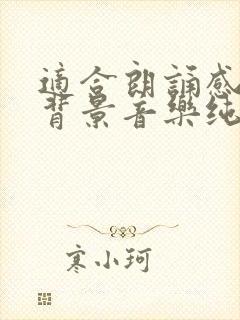 適合朗誦感
背景音樂純
寒小珂